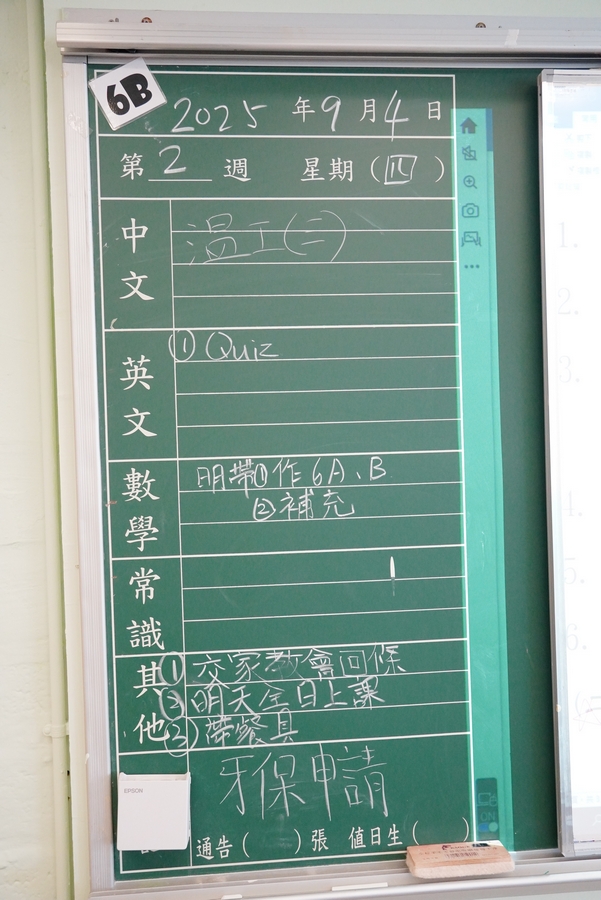 6B
2025年9月4日
第2週 星期(四)
中文
溫工(二)
英文
① Quiz
數學
明帶①作6A、B
②補充
常識
其他
① 交家教會回條
② 明天全日上課
③ 帶餐具
牙保申請
EPSON
通告( )張 值日生( )
1.
2.
3.
4.
5.
6.
ON